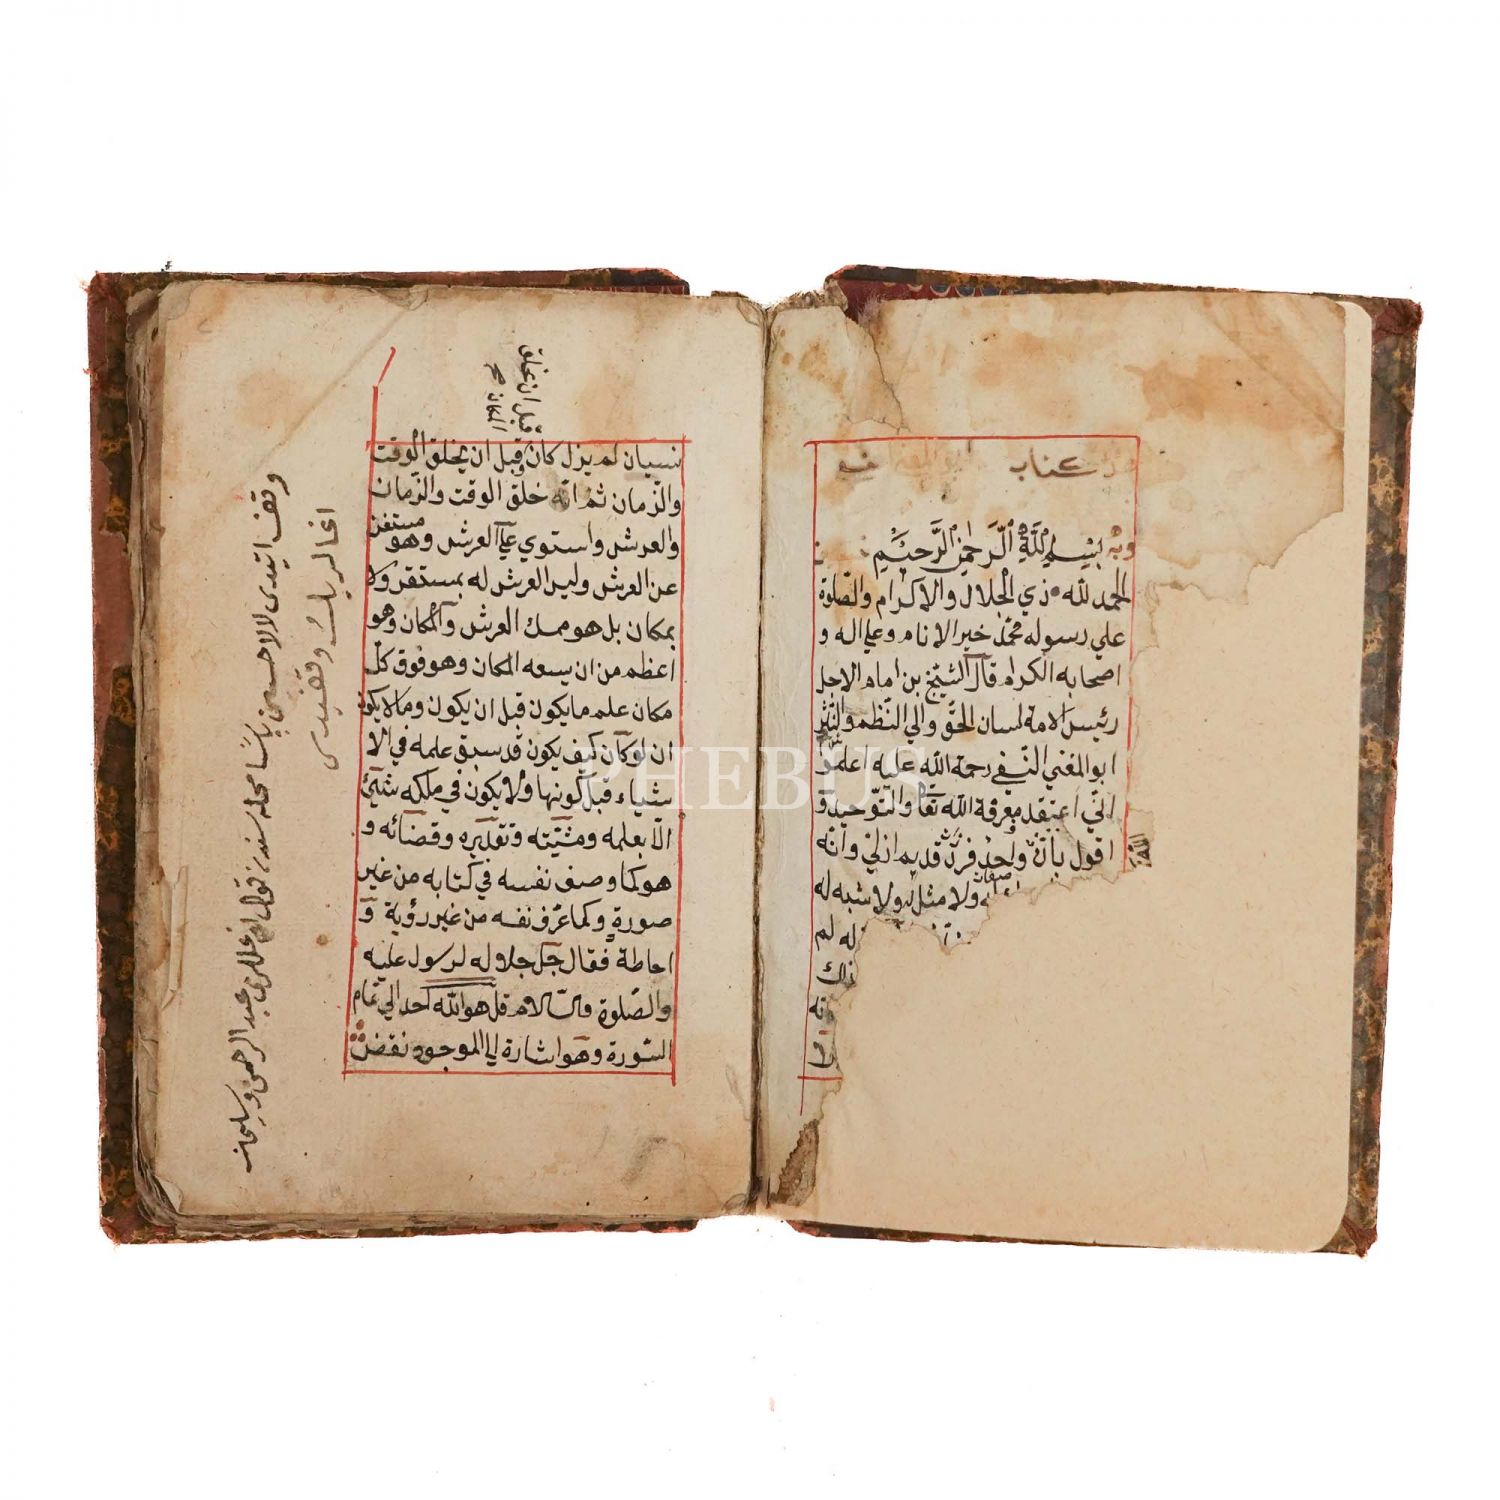 هذا كتاب ابو المعين
وبه بسم الله الرحمن الرحيم
الحمد لله ذي الجلال والاكرام والصلوة
علي رسوله محمد خير الانام وعلي اله و
اصحابه الكرام قال الشيخ بن امام الاجل
رئيس الامة لسان الحق والي النظم والنثر
ابو المغني النسفي رحمة الله عليه اعلم
اني اعتقد معرفة الله تعا والتوحيد و
اقول بانه واحد فرد قديم ازلي وانه
ولا مثل له ولا شبه له
له لم
ذلك
قبل ان يخلق
المكان صح
نسيان لم يزل كان وقبل ان يخلق الوقت
والزمان ثم انه خلق الوقت والزمان
والعرش واستوي علي العرش وهو مستغن
عن العرش وليس العرش له بمستقر ولا
بمكان بل هو ممسك العرش والمكان وهو
اعظم من ان يسعه المكان وهو فوق كل
مكان علم ما يكون قبل ان يكون وما لا يكون
ان لو كان كيف يكون قد سبق علمه في الا
شياء قبل كونها ولا يكون في ملكه شئ
الا بعلمه ومشيته وتقديره وقضائه و
هو كما وصف نفسه في كتابه من غير
صورة وكما عرف نفسه من غير رؤية و
احاطة فقال جل جلاله لرسول عليه
والصلوة والسلام قل هو الله احد الي تمام
السورة وهو اشارة الي الموجود نقض
وقف ايتدى لالا حسين پاشا محله سنده عبد الرحمن وسليمان
اغالريك وقفيدى
PHEBUS